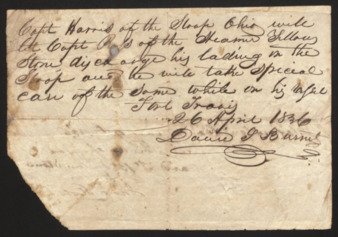 Capt Harris of the Sloop Ohio will
let Capt of the Steamer Yellow
Stone discharge his lading in the
Sloop and he will take Special
care of the Same while on his
Fort Travis
26 April 1836
David G Burnet